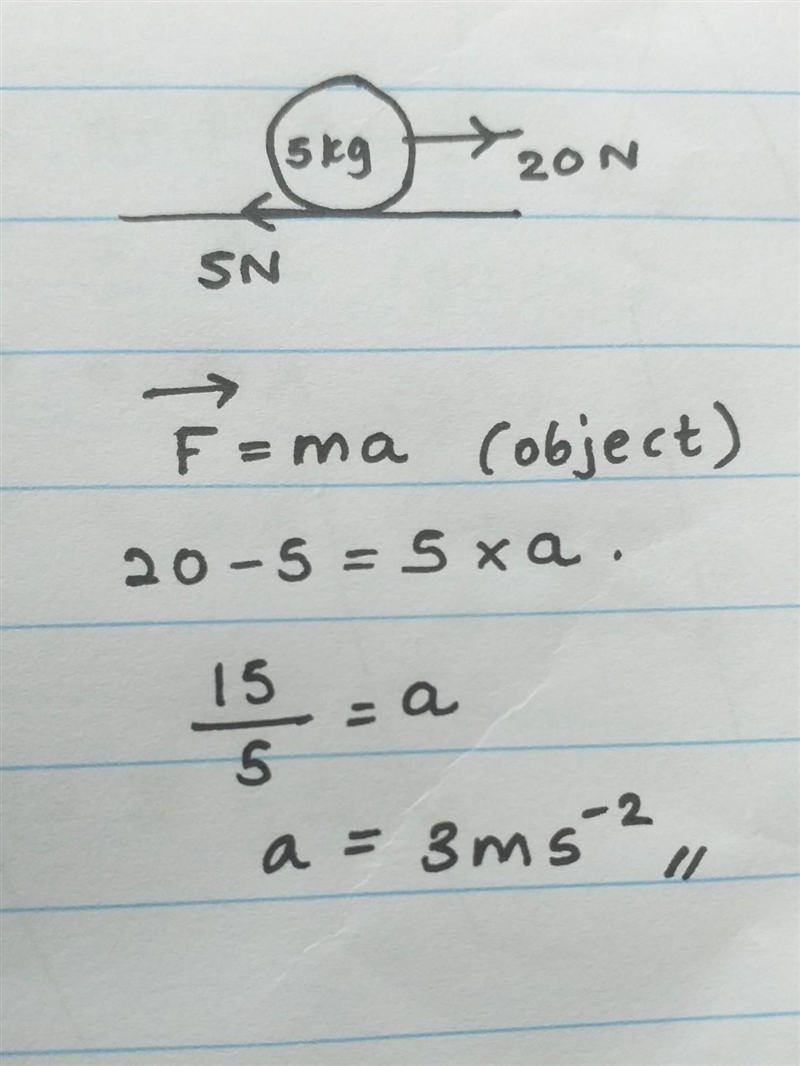 5kg
20N
5N
F = ma (object)
20 - 5 = 5 × a .
15
5
= a
a = 3ms⁻² //